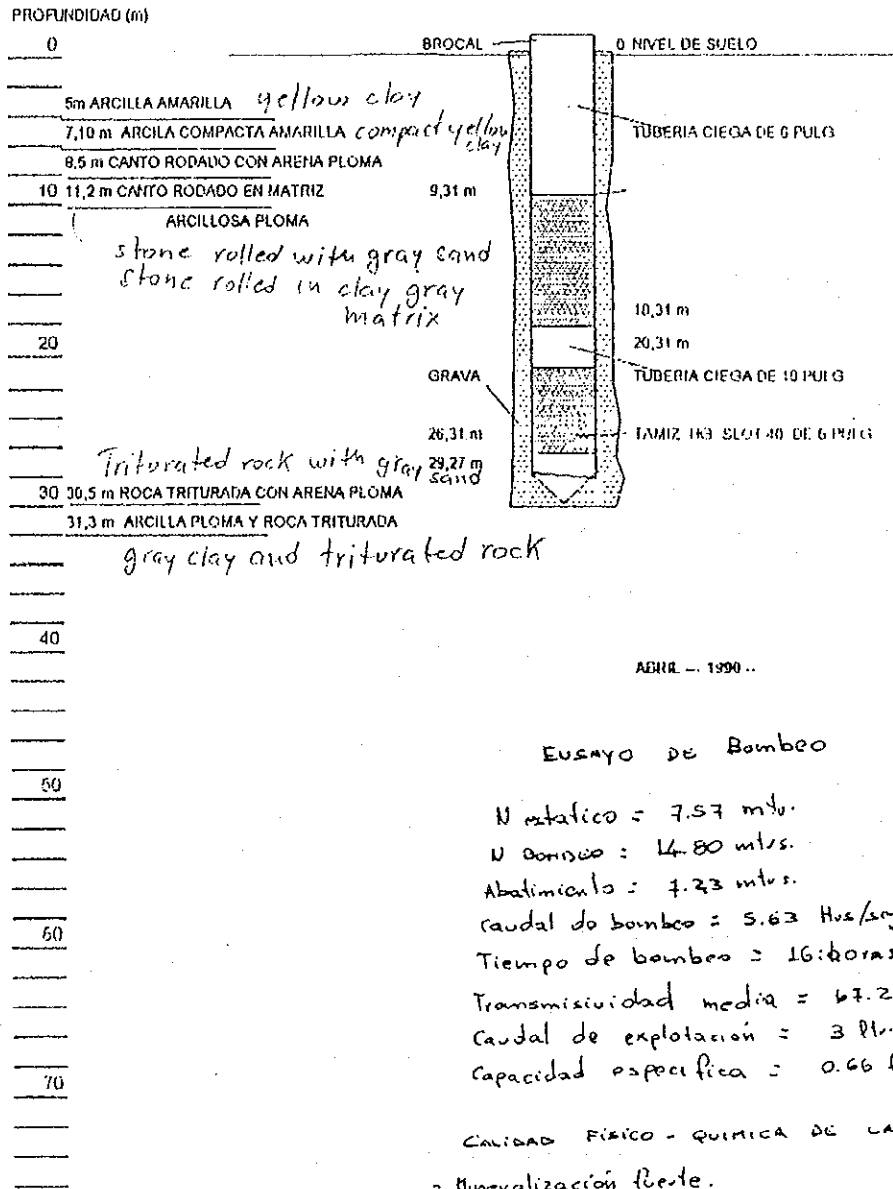 PROFUNDIDAD (m)
0
BROCAL
0 NIVEL DE SUELO
5m ARCILLA AMARILLA yellow clay
7,10 m ARCILA COMPACTA AMARILLA compact yellow clay
TUBERIA CIEGA DE 6 PULG
8,5 m CANTO RODADO CON ARENA PLOMA
10 11,2 m CANTO RODADO EN MATRIZ
9,31 m
ARCILLOSA PLOMA
stone rolled with gray sand
stone rolled in clay gray
matrix
18,31 m
20
20,31 m
GRAVA
TUBERIA CIEGA DE 10 PULG
26,31 m
TAMIZ SLOT 40 DE 6 PULG
Triturated rock with gray sand
29,27 m
30 30,5 m ROCA TRITURADA CON ARENA PLOMA
31,3 m ARCILLA PLOMA Y ROCA TRITURADA
gray clay and triturated rock
40
ABRIL - 1990
ENSAYO DE Bombeo
50
N estatico = 7.57 mts.
N Bombeo : 14.80 mtvs.
Abatimiento : 7.23 mtvs.
60
caudal de bombeo = 5.63
Tiempo de bombeo = 16 horas
Transmisividad media = 67.2
Caudal de explotación = 3
70
Capacidad especifica = 0.66
CALIDAD FÍSICO - QUIMICA DE LA
Mineralización fuerte.